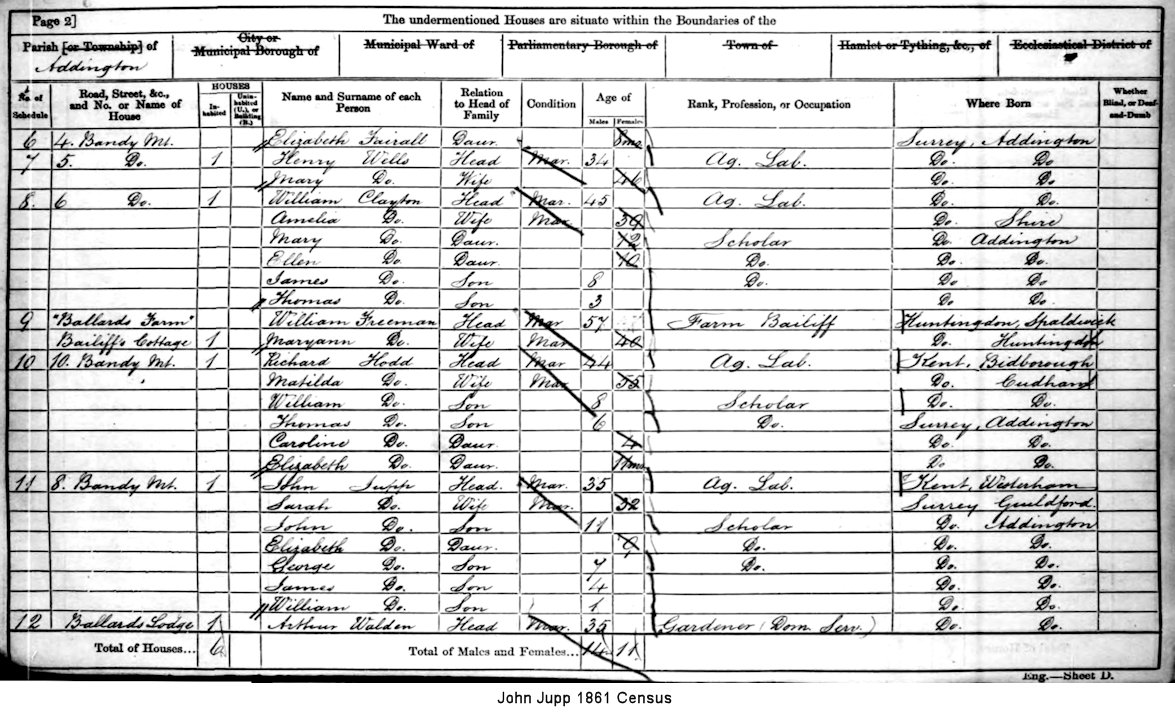 Page 2]
The undermentioned Houses are situate within the Boundaries of the
Parish [or Township] of
Addington
City or Municipal Borough of
Municipal Ward of
Parliamentary Borough of
Town of
Hamlet or Tything, &c., of
Ecclesiastical District of
No. of Schedule
Road, Street, &c., and No. or Name of House
HOUSES
In-habited
Unin-habited (U.), or Building (B.)
Name and Surname of each Person
Relation to Head of Family
Condition
Age of
Males
Females
Rank, Profession, or Occupation
Where Born
Whether Blind, or Deaf-and-Dumb
6 4. Bandy Mt. Elizabeth Fairall Daur. 8ms Surrey, Addington
7 5. Do. 1 Henry Wells Head Mar. 34 Ag. Lab. Do. Do
Mary Do. Wife 46 Do. Do
8. 6 Do. 1 William Clayton Head Mar. 45 Ag. Lab. Do. Do.
Amelia Do. Wife Mar 39 Do. Shire
Mary Do. Daur. 12 Scholar Do. Addington
Ellen Do. Daur. 10 Do. Do. Do.
James Do. Son 8 Do. Do. Do
Thomas Do. Son 3 Do. Do
9 "Ballards Farm" William Freeman Head Mar 57 Farm Bailiff Huntingdon, Spaldwick
Bailiff's Cottage 1 Maryann Do. Wife Mar 40 Do. Huntingdon
10 10. Bandy Mt. 1 Richard Hodd Head Mar 44 Ag. Lab. Kent, Bidborough
Matilda Do. Wife Mar 35 Do. Cudham
William Do. Son 8 Scholar Do. Do.
Thomas Do. Son 6 Do. Surrey, Addington
Caroline Do. Daur. 4 Do. Do.
Elizabeth Do. Daur. 11ms Do Do.
11 8. Bandy Mt. 1 John Jupp Head. Mar. 35 Ag. Lab. Kent, Westerham
Sarah Do. Wife Mar. 32 Surrey Guildford.
John Do. Son 11 Scholar Do. Addington
Elizabeth Do. Daur. 9 Do. Do. Do.
George Do. Son 7 Do. Do. Do.
James Do. Son 4 Do. Do.
William Do. Son 1 Do. Do.
12 Ballards Lodge 1 Arthur Walden Head Mar. 35 Gardener (Dom. Serv.) Do. Do.
Total of Houses... 6 Total of Males and Females... 14 11
Eng.—Sheet D.
John Jupp 1861 Census